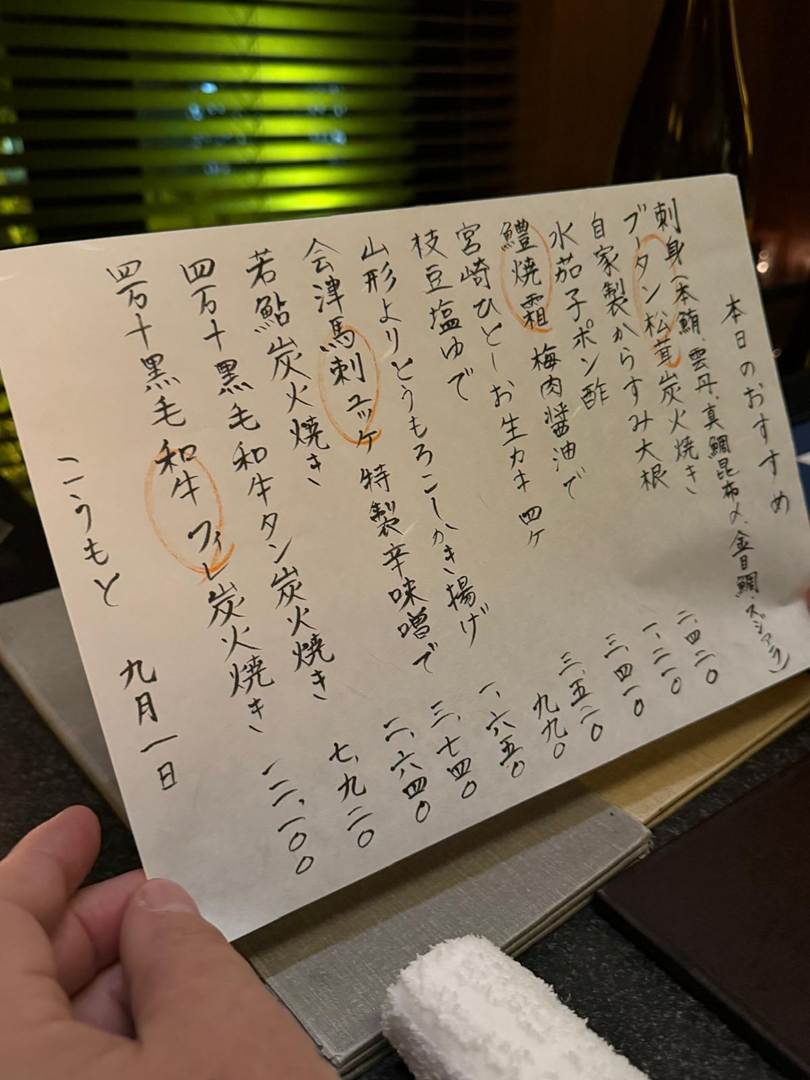 本日のおすすめ
刺身(本鮪、雲丹、真鯛昆布〆、金目鯛、スジアラ)
ブータン松茸炭火焼き
自家製からすみ大根 二、四二〇
水茄子ポン酢 一、二一〇
鱧焼霜 梅肉醤油で 三、四一〇
宮崎ひとしお生カキ 四ケ 三、五二〇
枝豆塩ゆで 九九〇
山形よりとうもろこしかき揚げ 一、六五〇
会津馬刺ユッケ 特製辛味噌で 三、七四〇
若鮎炭火焼き 二、六四〇
四万十黒毛和牛タン炭火焼き 七、九二〇
四万十黒毛和牛フィレ炭火焼き 一二、一〇〇
こうもと 九月一日